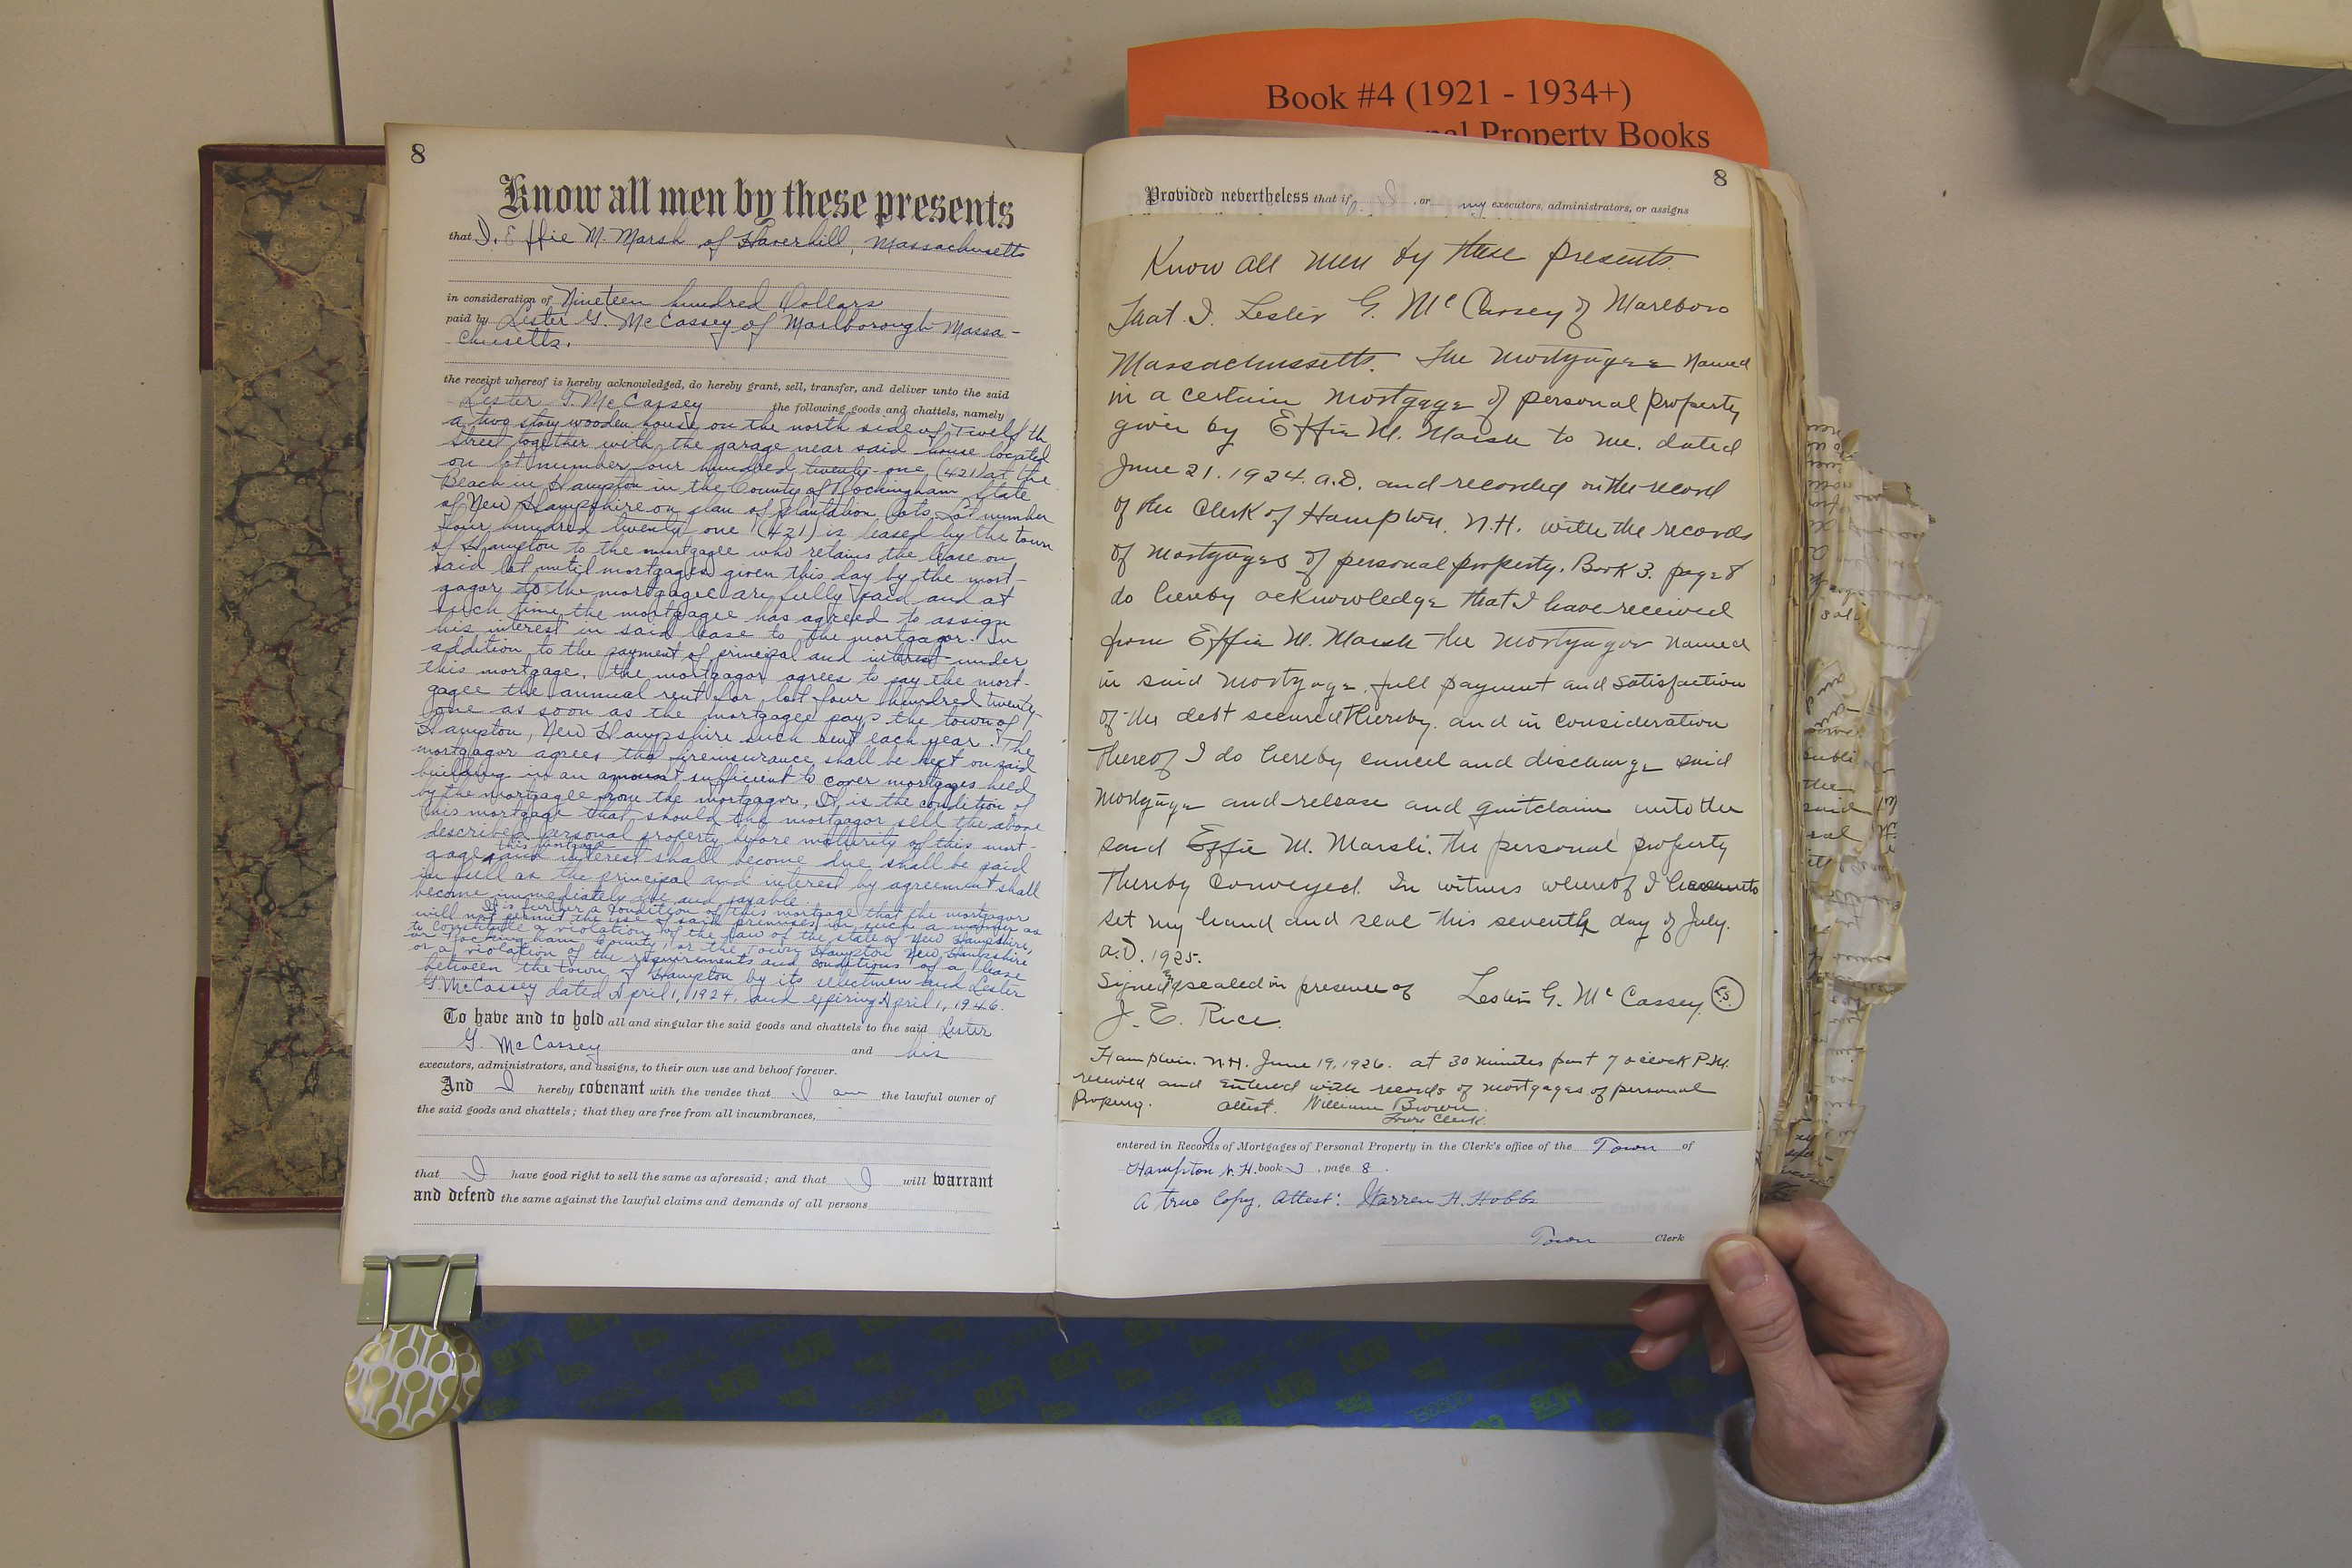 Book #4 (1921 - 1934+)
Property Books
8
Know all men by these presents
that I, Effie M. Marsh of Haverhill, Massachusetts
in consideration of Nineteen hundred Dollars
paid by Lester G. McCassey of Marlborough Massa-
chusetts.
the receipt whereof is hereby acknowledged, do hereby grant, sell, transfer, and deliver unto the said
Lester G. McCassey the following goods and chattels, namely
a two story wooden house on the north side of Twelfth
Street together with the garage near said house located
on lot number four hundred twenty-one (421) at the
Beach in Hampton in the County of Rockingham State
of New Hampshire on plan of plantation lots. Lot number
four hundred twenty one (421) is leased by the town
of Hampton to the mortgagee who retains the lease on
said lot until mortgages given this day by the mort-
gagor to the mortgagee are fully paid and at
such time the mortgagee has agreed to assign
his interest in said lease to the mortgagor. In
addition to the payment of principal and interest under
this mortgage, the mortgagor agrees to pay the mort-
gagee the annual rent for lot four hundred twenty-
one as soon as the mortgagee pays the town of
Hampton, New Hampshire such rent each year. The
mortgagor agrees that fire insurance shall be kept on said
building in an amount sufficient to cover mortgages held
by the mortgagee from the mortgagor. It is the condition of
this mortgage that should the mortgagor sell the above
described personal property before maturity of this mort-
this mortgage
gage, and interest shall become due shall be paid
in full as the principal and interest by agreement shall
become immediately due and payable.
It is further a condition of this mortgage that the mortgagor
will not permit the use of said premises in such a manner as
to constitute a violation of the law of the state of New Hampshire,
or Rockingham County, or the Town Hampton New Hampshire
or a violation of the requirements and conditions of a lease
between the town of Hampton by its selectmen and Lester
G. McCassey dated April 1, 1924, and expiring April 1, 1946.
To have and to hold all and singular the said goods and chattels to the said Lester
G. McCassey and his
executors, administrators, and assigns, to their own use and behoof forever.
And I hereby covenant with the vendee that I am the lawful owner of
the said goods and chattels; that they are free from all incumbrances,
that I have good right to sell the same as aforesaid; and that I will warrant
and defend the same against the lawful claims and demands of all persons
8
Provided nevertheless that if I, or my executors, administrators, or assigns
Know all men by these presents.
That I. Lester G. McCassey of Marlboro
Massachussetts. The Mortgagee Named
in a certain mortgage of personal property
given by Effie M. Marsh to me. dated
June 21. 1924. A.D. and recorded on the record
of the Clerk of Hampton. N.H. with the records
of mortgages of personal property. Book 3. page 8
do hereby acknowledge that I have received
from Effie M. Marsh the mortgagor named
in said mortgage, full payment and satisfaction
of the debt secured thereby. and in consideration
thereof I do hereby cancel and discharge said
mortgage and release and quitclaim unto the
said Effie M. Marsh. the personal property
thereby conveyed. In witness whereof I hereunto
set my hand and seal this seventh day of July.
A.D. 1925.
Signed & sealed in presence of Lester G. McCassey L.S.
J. E. Rice.
Hampton. N.H. June 19, 1926. at 30 minutes past 7 oclock P.M.
received and entered with records of mortgages of personal
Property. attest. William Brown.
Town Clerk.
entered in Records of Mortgages of Personal Property in the Clerk's office of the Town of
Hampton N.H. book 3, page 8.
A true Copy, Attest: Warren H. Hobbs
Town Clerk